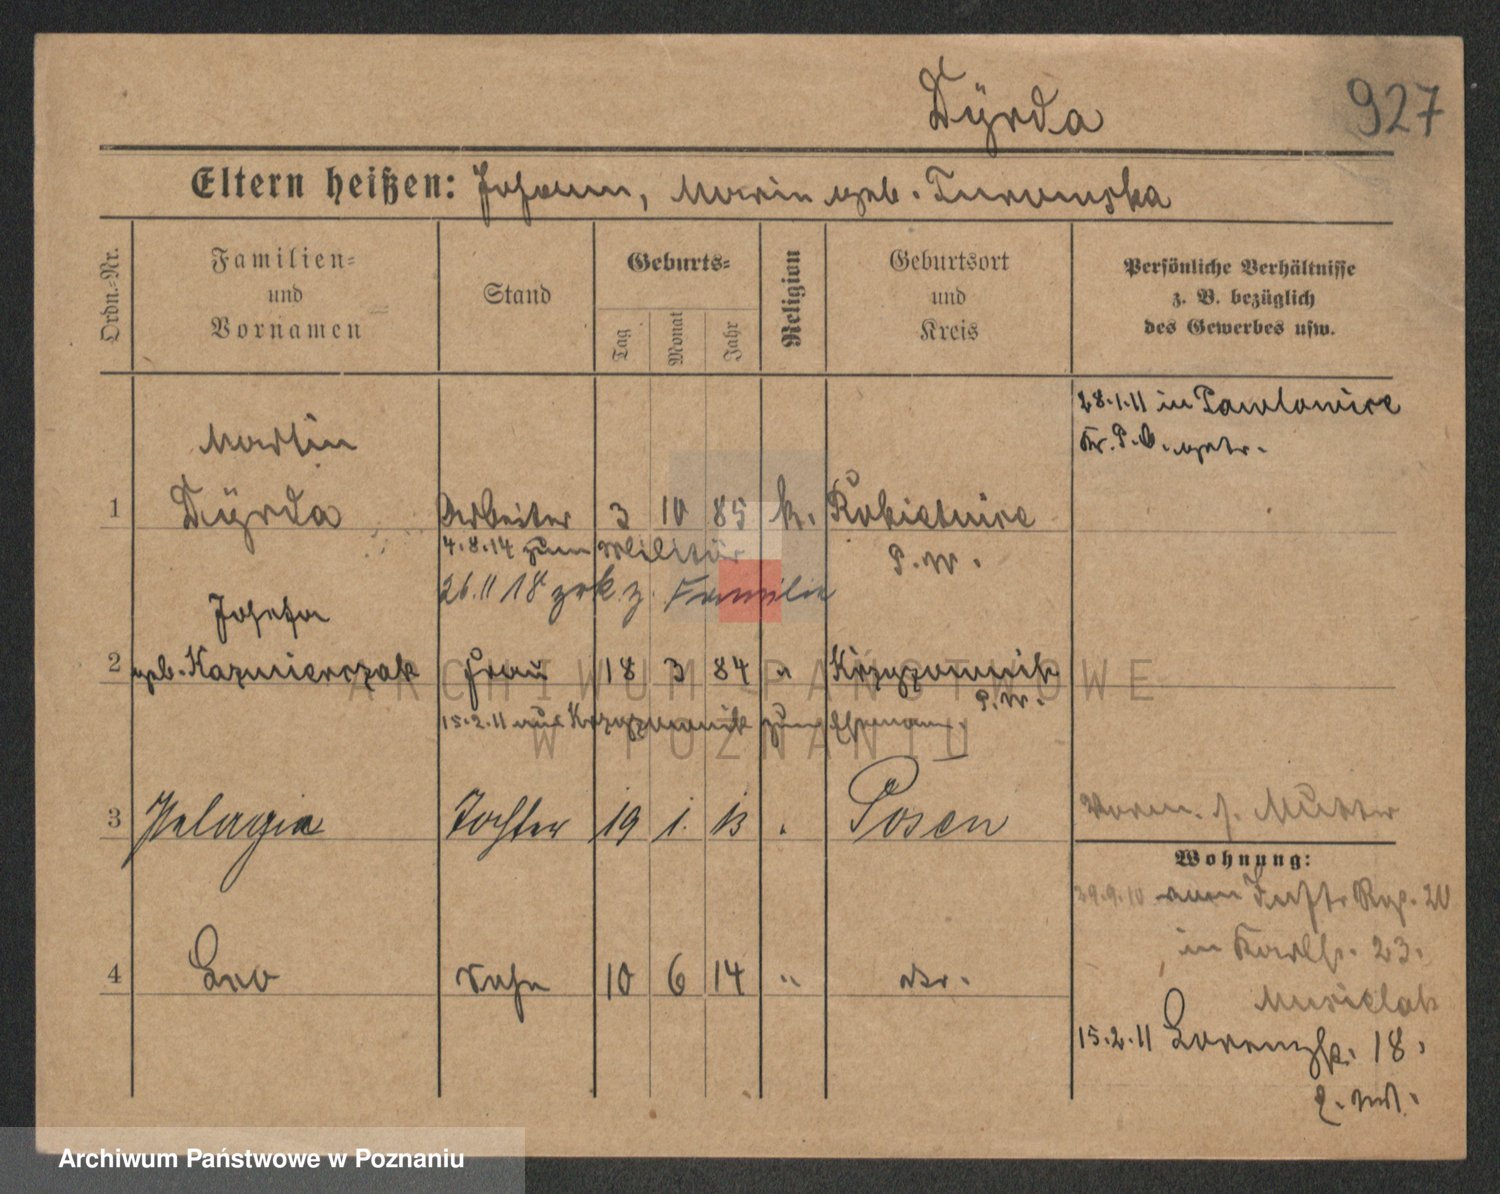 Dÿrda 927
Eltern heißen: Johann, Marie geb. Turowska
Ordn.-Nr.
Familien- und Vornamen
Stand
Geburts-
Tag
Monat
Jahr
Religion
Geburtsort und Kreis
Persönliche Verhältnisse
z. B. bezüglich
des Gewerbes usw.
28.1.11 in Pawlowice
Kr. P. O. getr.
Martin
1 Dÿrda Arbeiter 3 10 85 k. Rokietnice
4.8.14 zum Militär P. W.
26.11 18 zrk. z. Familie
Josefa
2 geb. Kazmierczak Frau 18 3 84 " Krzyzownik
P. W.
15.2.11 aus Krzyzownik zum Ehemann.
3 Pelagia Tochter 19 1. 13 . Posen
Vorm. s. Mutter
Wohnung:
29.9.10 vom Rgt. 20
in 23.
4 Leo Sohn 10 6 14 " do.
Musielak
15.2.11 Lorenzstr. 18.
ARCHIWUM PAŃSTWOWE
W POZNANIU
Archiwum Państwowe w Poznaniu